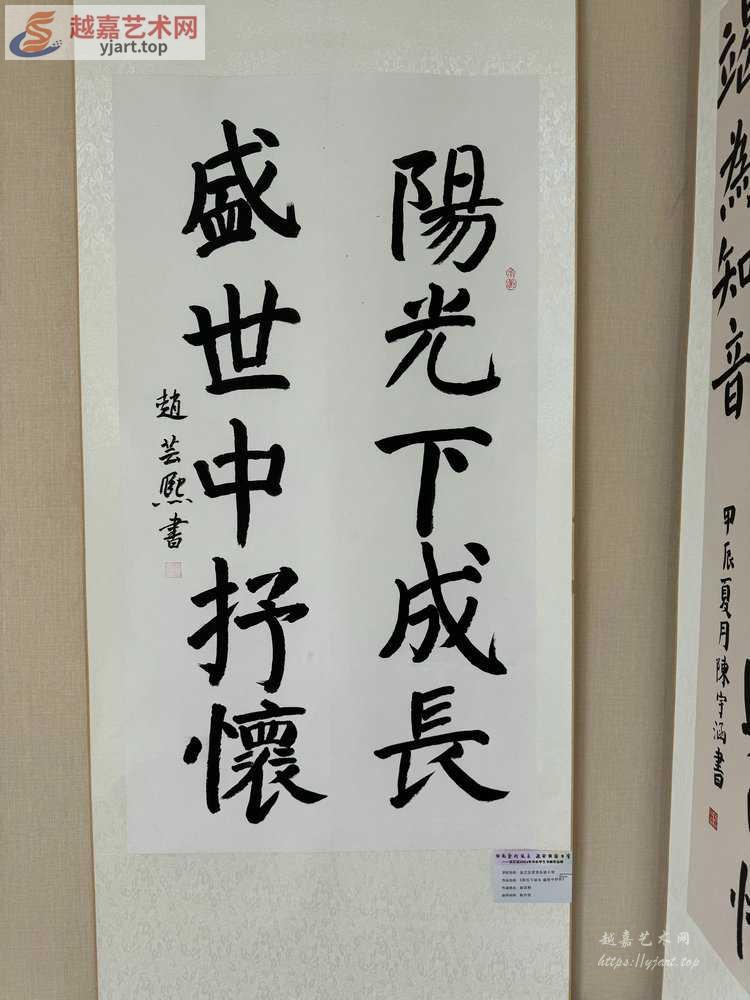 越嘉艺术网
yjart.top
陽光下成長
盛世中抒懷
趙芸熙書
為知音
甲辰夏月陳宇涵書
越嘉艺术网
https://yjart.top